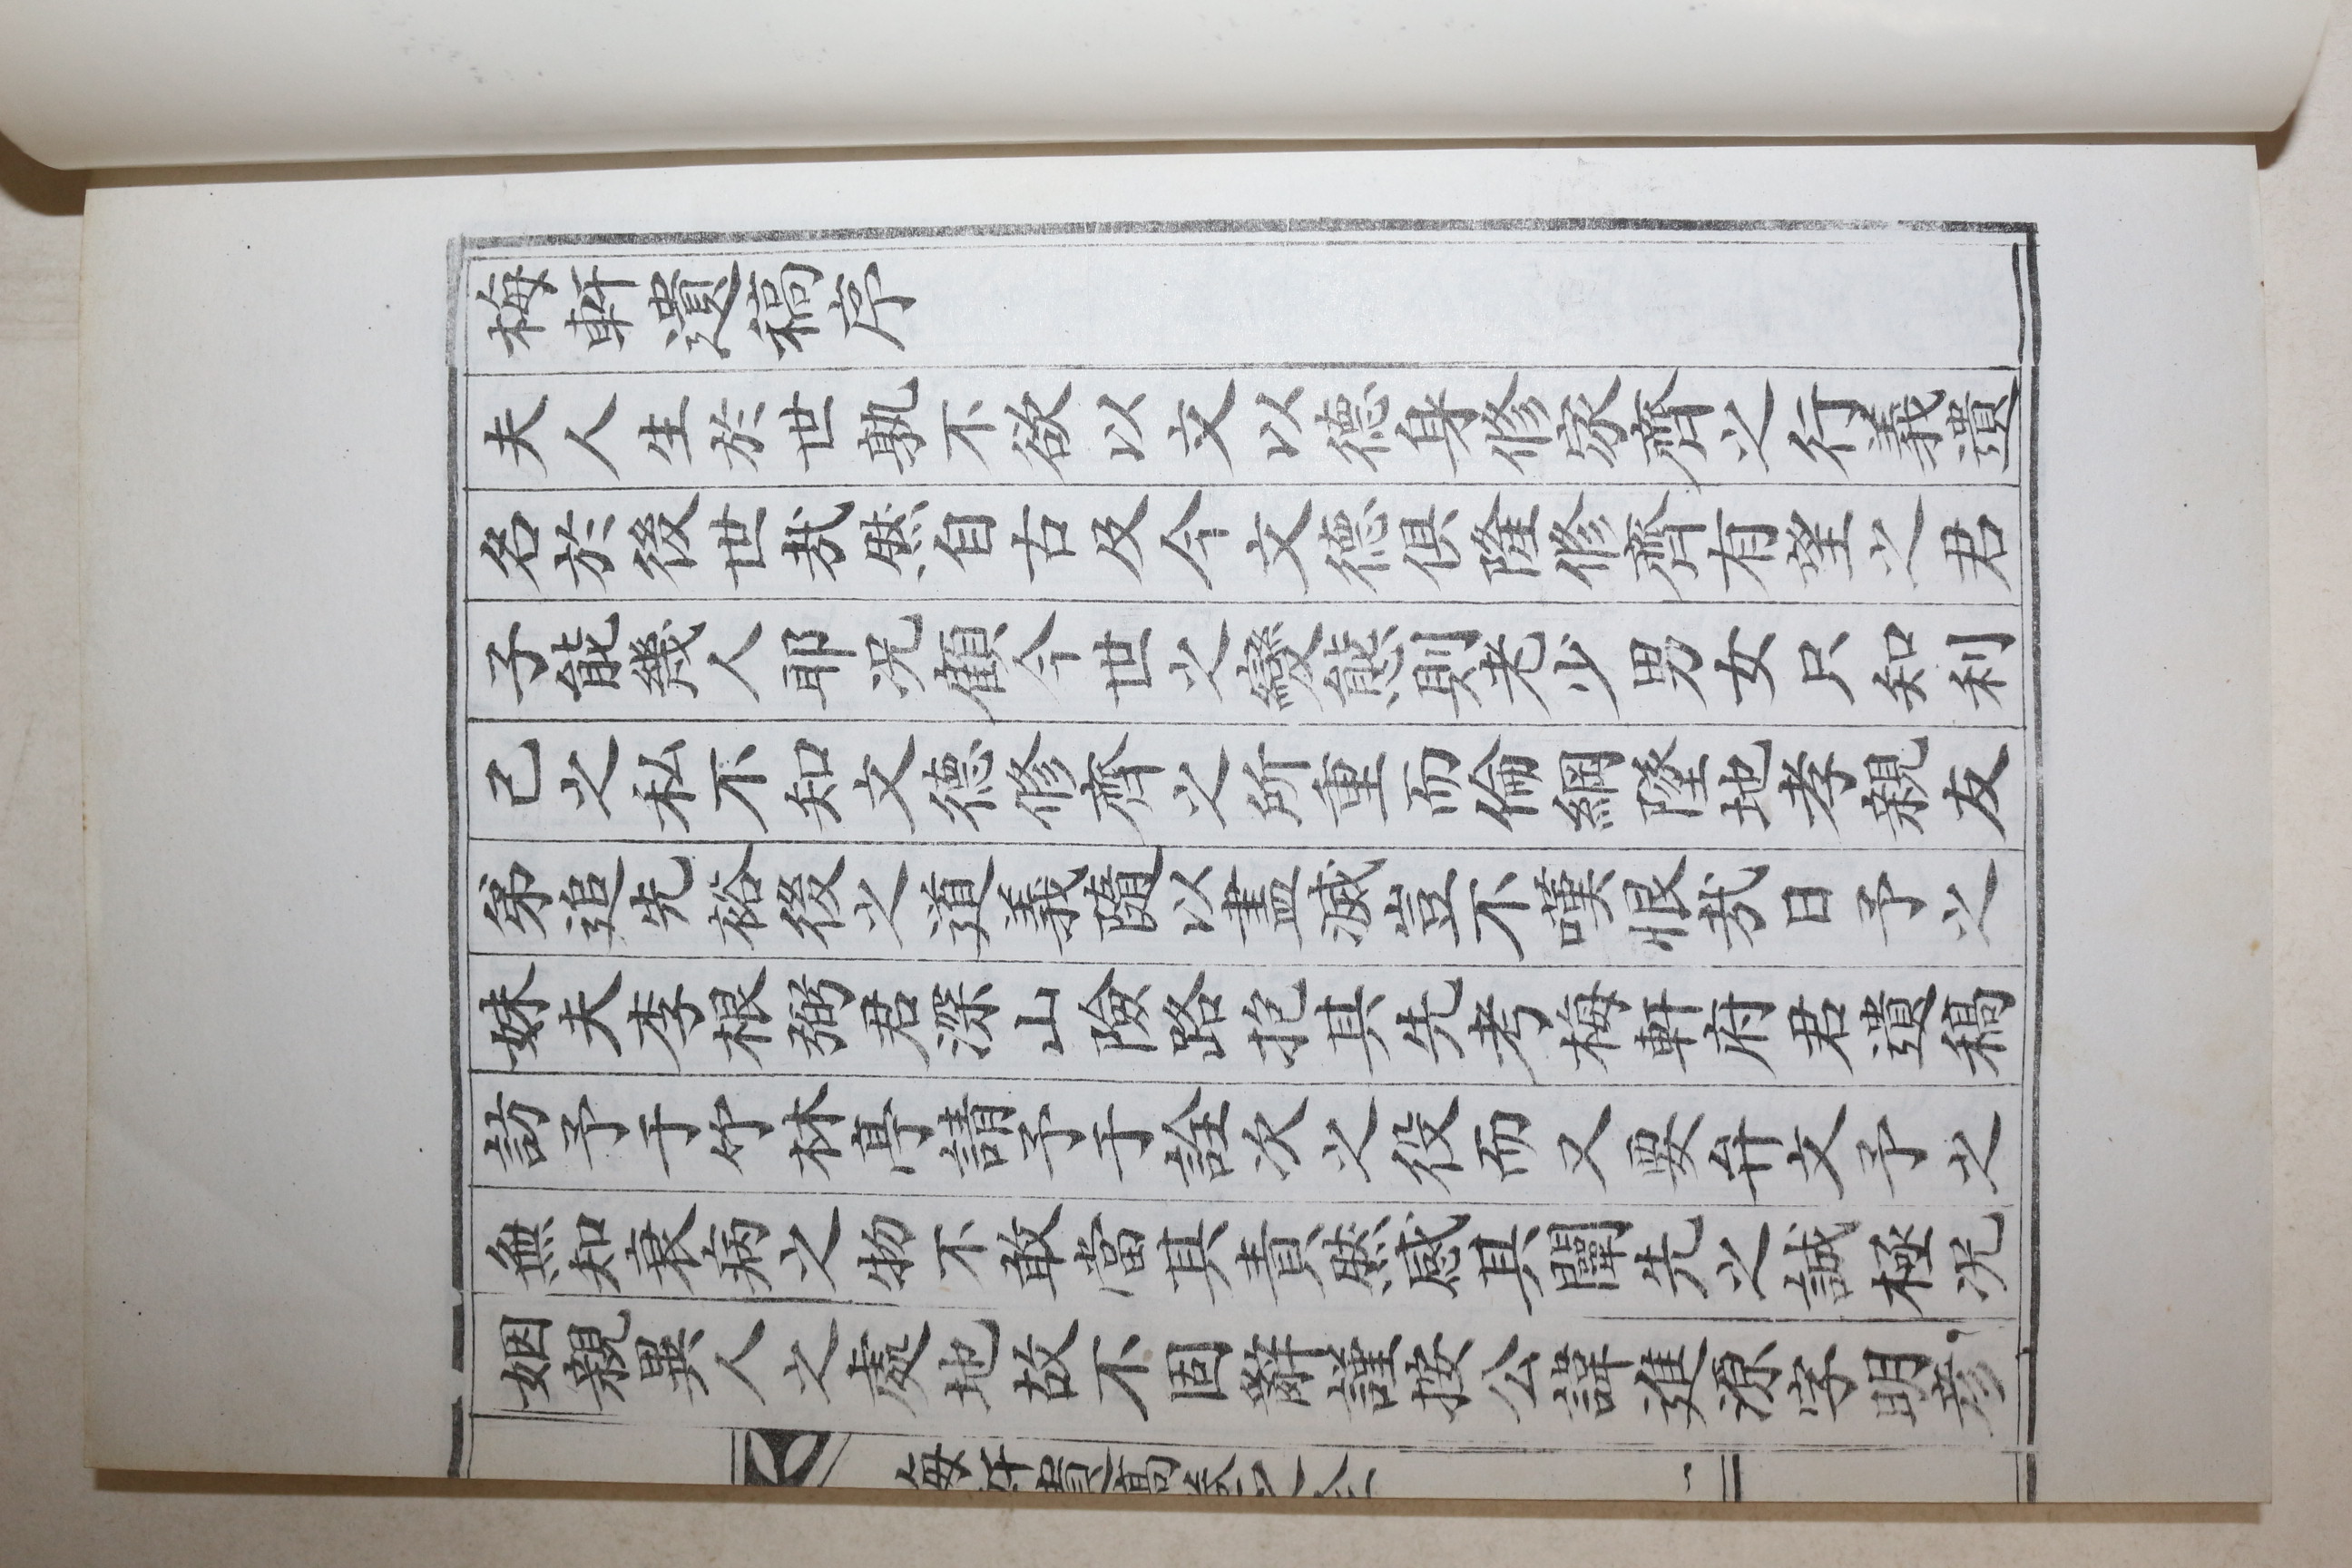 梅軒遺稿序
夫人生於世孰不欲以文以德身修家齊之行義遺
名於後世哉然自古及今文德俱隆修齊有望之君
子能幾人耶况顧今世之變態則老少男女只知利
己之私不知文德修齊之所重而倫綱墜地孝親友
弟追先裕後之道義隨以盡滅豈不嘆恨哉日予之
妹夫李根弼君深山險路抱其先考梅軒府君遺稿
訪予于竹林亭請予于詮次之役而又要弁文予之
無知衰病之物不敢當其責然感其闡先之誠極况
姻親異人之處地故不固辭謹按公諱進源字明彦
梅軒遺稿卷之全
一